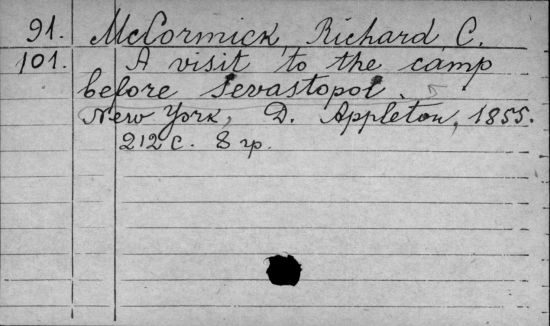 91. McCormick, Richard C.
101. A visit to the camp
before Sevastopol.
New York, D. Appleton, 1855.
212 c. 8 гр.